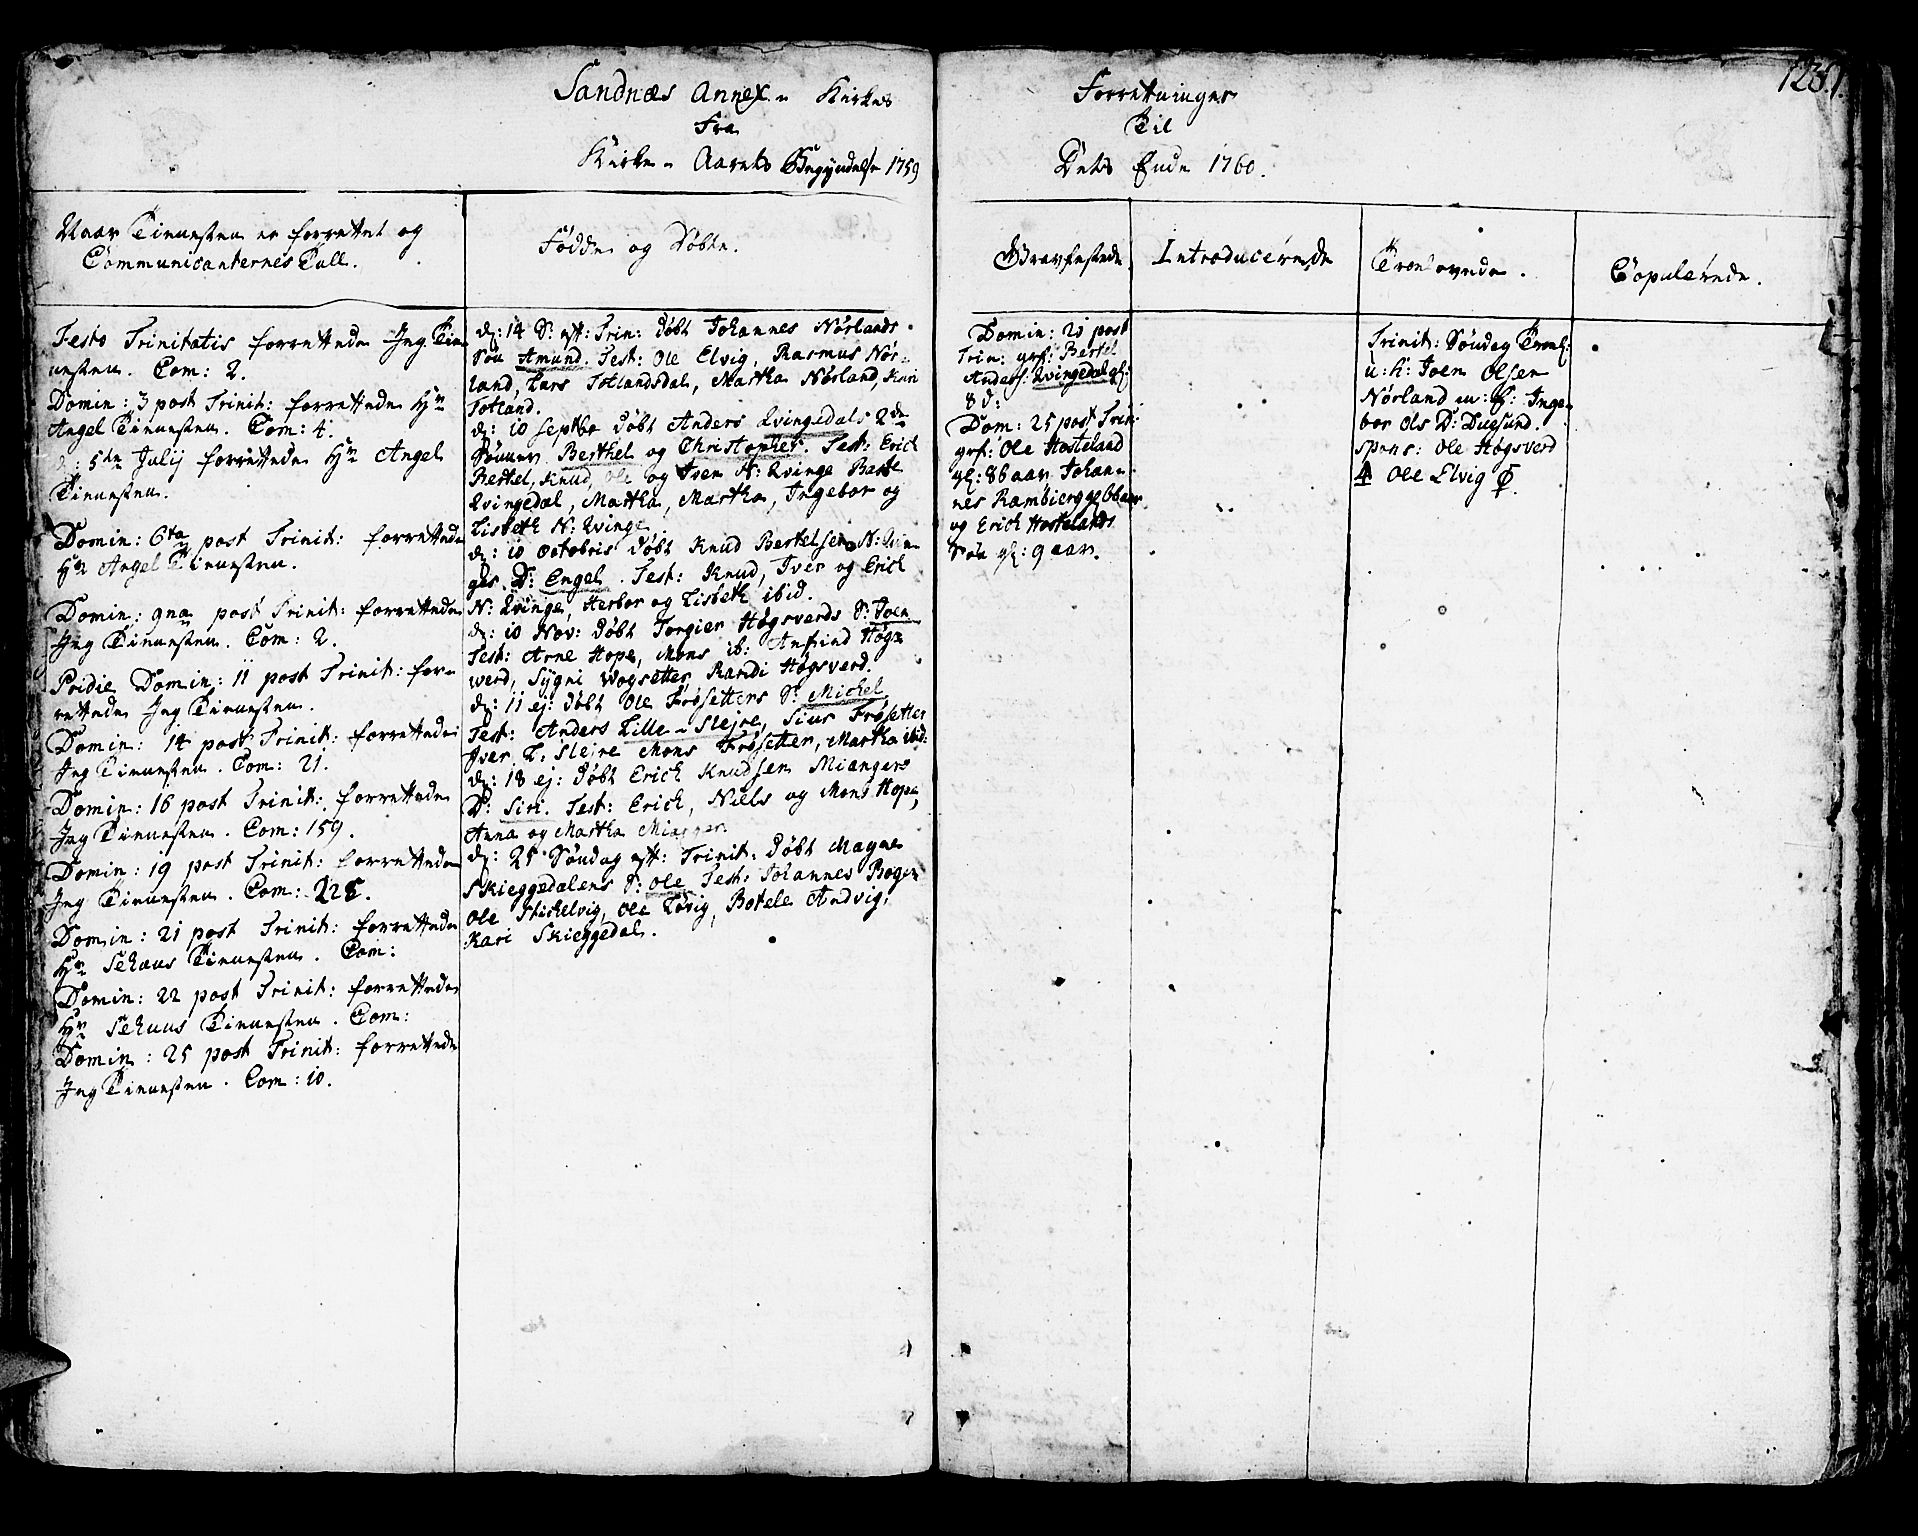 Sandnæs Annex- Kirkes
Fra
Kirke- Aarets Begyndelse 1759
Forretninger
Til
Dets Ende 1760.
1281.
Naar Tienesten er forrettet og
Communicanternes Tall.
Fødde og Døbte.
Gravfestede
Introducerede
Troelovede.
Copulerede.
Festo Trinitatis forrettede Jeg Tie
nesten. Com: 2.
Domin: 3 post Trinit: forrettede Hr
Angel Tienesten. Com: 4.
d: 5te Julij forrettede Hr Angel
Tienesten.
Domin: 6ta post Trinit: forrettede
Hr Angel Tienesten.
Domin: 9na post Trinit: forrettede
Jeg Tienesten. Com: 2.
Pridie Domin: 11 post Trinit: for-
rettede Jeg Tienesten.
Domin: 14 post Trinit: forrettede
Jeg Tienesten. Com: 21.
Domin: 16 post Trinit: forrettede
Jeg Tienesten. Com: 159.
Domin: 19 post Trinit: forrettede
Jeg Tienesten. Com: 225.
Domin: 21 post Trinit: forrettede
Hr Schaus Tienesten. Com:
Domin: 22 post Trinit: forrettede
Hr Schaus Tienesten. Com:
Domin: 25 post Trinit: forrettede
Jeg Tienesten. Com: 10.
d: 14 S. eft: Trin: døbt Johannes Nørlands
Søn Amund. Test: Ole Elvig, Rasmus Nør-
land, Lars Totlandsdal, Martha Nørland, Kari
Totland.
d: 10 Septbr døbt Anders Qvingedals 2de
Sønner Berthel og Christopher. Test: Erich
Bertel, Knud, Ole og Iver N: Qvinge Berte
Qvingedal, Martha, Martha, Ingebor og
Lisbeth N: Qvinge
d: 10 Octobris døbt Knud Bertelsen N: Qvin
ges D: Engel. Test: Knud, Iver og Erich
N: Qvinge, Herbor og Lisbeth ibid.
d: 10 Nov: døbt Torgier Høgsverds S: Joen
Test: Arne Hope, Mons ib: Anfind Høgs
werd, Sygni Wogsetter, Randi Høgsverd.
d: 11 ej: døbt Ole Frøsetters S: Michel
Test: Anders Lille-Slejre, Sius Frøsetter
Iver L: Slejre Mons Frøsetter, Martha ibid:
d: 18 ej: døbt Erich Knudsen Miangers
D: Siri. Test: Erich, Niels og Mons Hope,
Anna og Martha Mianger.
d: 25 Søndag eft: Trinit: døbt Magne
Skieggedalens S: Ole Test: Johannes Bogen
Ole Stickelvig, Ole Løvig, Botele Andvig,
Kari Skieggedal.
Domin: 21 post
Trin: grf: Bertel
Anders: Qvingedal gl:
8 d:
Dom: 25 post Trin:
grf: Ole Hosteland
gl: 86 aar Johan-
nes Rambierg gl 66 aar
og Erich Hostelands
Søn gl: 9 aar.
Trinit: Søndag Troel:
u: k: Joen Olsen
Nørland m: P: Inge-
bor Ols D: Duesund.
Spons: Ole Høgsverd
& Ole Elvig